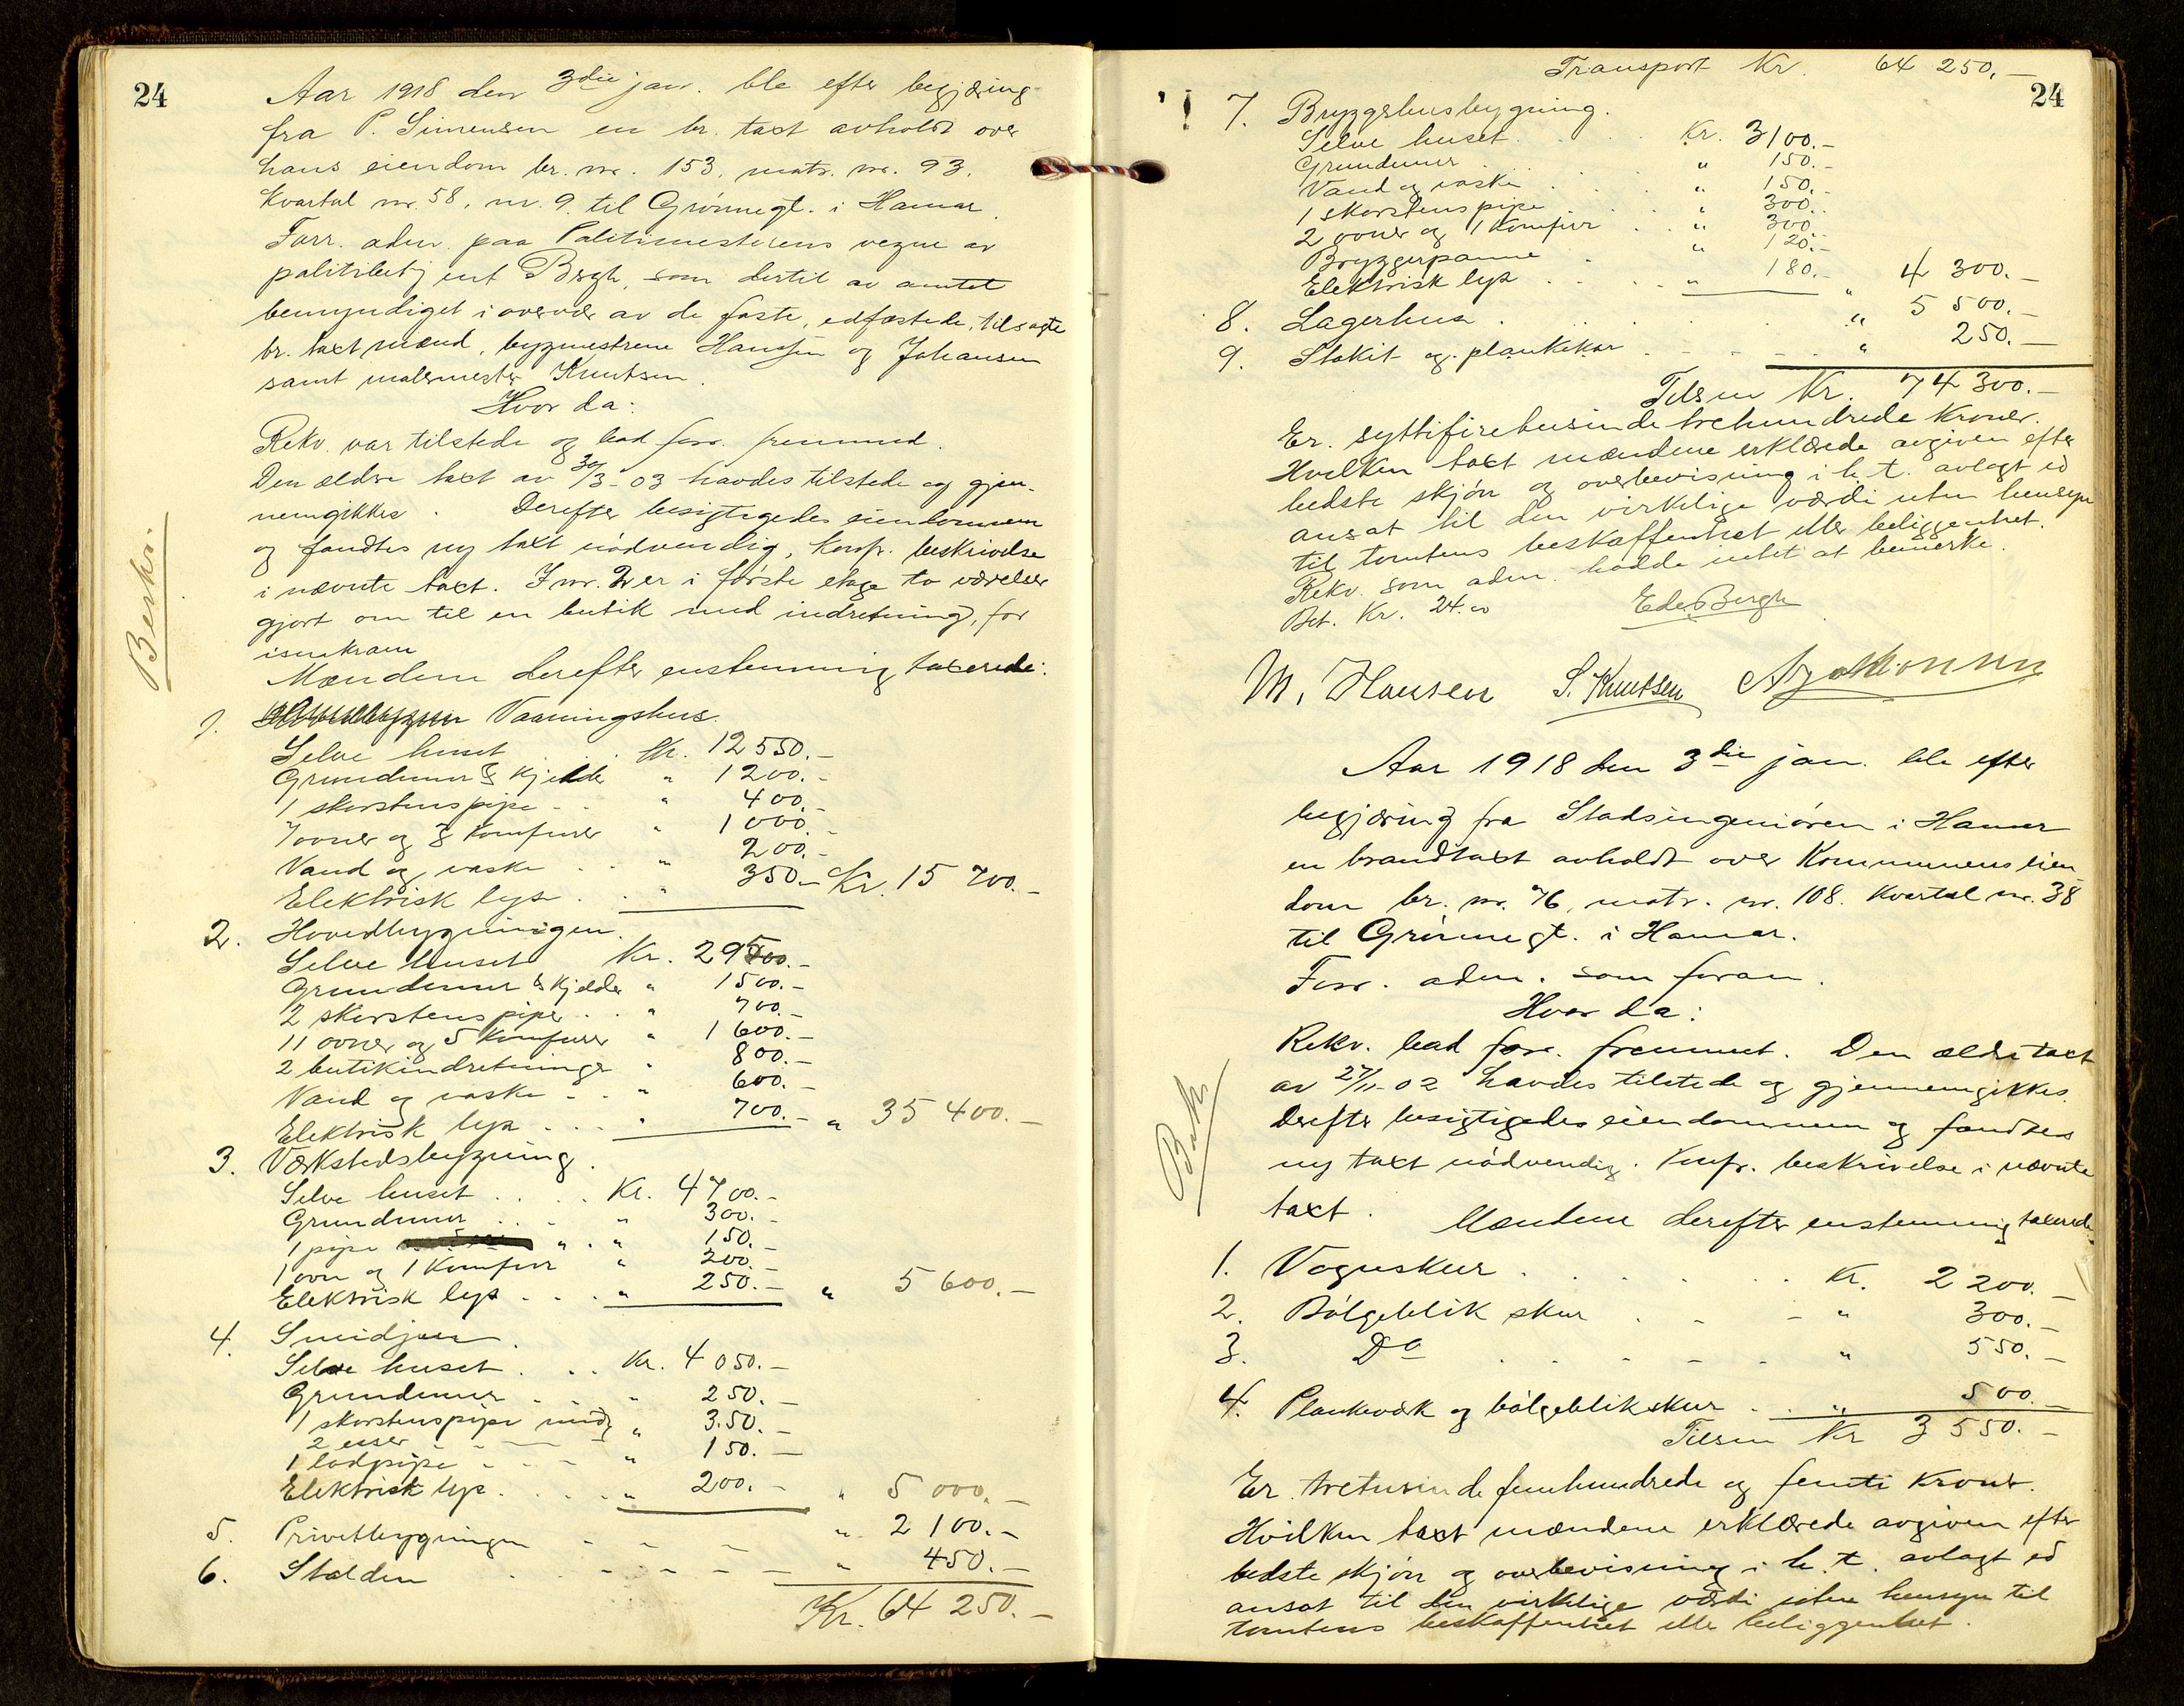 24
Aar 1918 den 3die jan. ble efter begjæring
fra P. Simensen en br. taxt avholdt over
hans eiendom br. nr. 153, matr. nr. 93.
Kvartal nr. 58, nr. 9 til Grønnegt. i Hamar.
Forr. adm. paa Politimesterens vegne av
politibetjent Bergh, som dertil av amtet
bemyndiget i overvær av de faste, edfæstede, tilsagte
br. taxtmænd, bygmestrene Hansen og Johansen
samt malermester Knutsen.
Hvor da:
Rekv. var tilstede og bad forr. fremmed.
Den ældre taxt av 30/3-03 havdes tilstede og gjen-
nemgikkes. Derefter besigtigedes eiendommen
og fandtes ny taxt nødvendig, konfr. beskrivelse
i nævnte taxt. I nr. 2 er i første etage to værelser
gjort om til en butik med indretning, for
isenkram
Mændene derefter enstemmig taxerede:
Beskr.
1. Vaaningshus.
Selve huset . . Kr. 12 550.-
Grundmur & Kjelder " 1 200.-
1 skorstenspipe - . " 400.-
7 ovner og 3 Komfurer " 1 000.-
Vand og vaske . . " 200.-
Elektrisk lys . . " 350.- Kr. 15 700.-
2. Hovedbygningen.
Selve huset Kr. 29500.-
Grundmur & Kjelder " 1500.-
2 skorstenspiper . . " 700.-
11 ovner og 5 Komfurer " 1 600.-
2 butikindretninger " 800.-
Vand og vaske - . " 600.-
Elektrisk lys . . . " 700.- " 35 400.-
3. Værkstedsbygning.
Selve huset . . . . Kr. 4700.-
Grundmur . . . " 300.-
1 pipe " . " 150.-
1 ovn og 1 Komfur " 200.-
Elektrisk lys . . . " 250.- " 5 600.-
4. Smidjen.
Selve huset . . . Kr. 4 050.-
Grundmur . . . " 250.-
1 skorstenspipe med } " 3.50.-
2 esser - - -
1 lodpipe - - - " 150.-
Elektrisk lys . . . . " 200.- " 5 000.-
5. Privetbygningen - - - " 2 100.-
6. Stalden . - - - - - " 450.-
Kr. 64 250.-
Transport Kr. 64 250.-
24
7. Bryggehusbygning.
Selve huset . . . Kr. 3100.-
Grundmur . . . " 150.-
Vand og vaske . . . " 150.-
1 skorstenspipe . . . " 300.-
2 ovner og 1 Komfur . . " 300.-
Bryggerpanne . " 120.-
Elektrisk lys . . . . " 180.- " 4 300.-
8. Lagerhus . . . . . . " 5 500.-
9. Stakit og plankekar . - - - " 250.-
Tilsm Kr. 74 300.-
Er. syttifiretusinde trehundrede Kroner.
Hvilken taxt mændene erklærede avgiven efter
bedste skjøn og overbevisning i h. t. avlagt ed
ansat til den virkelige værdi uten hensyn
til tomtens beskaffenhet eller beliggenhet.
Rekv. som adm. hadde intet at bemerke.
Bet. Kr. 24.00 Edv. Bergh
M. Hansen S. Knutsen
Aar 1918 den 3die jan. ble efter
begjæring fra Stadsingeniøren i Hamar
en brandtaxt avholdt over Kommunens eien
dom br. nr. 76, matr. nr. 108. Kvartal nr. 38
til Grønnegt. i Hamar.
Forr. adm. som foran.
Hvor da:
Rekv. bad forr. fremmet. Den ældre taxt
av 27/11-02 havdes tilstede og gjennemgikkes.
Derefter besigtigedes eiendommen og fandtes
ny taxt nødvendig. Konfr. beskrivelse i nævnte
taxt. Mændene derefter enstemmig taxerede:
Beskr.
1. Vognskur . . . . . . Kr. 2 200.-
2. Bølgeblik skur . - - " 300.-
3. Do . . - - - " 550.-
4. Plankeværk og bølgeblikskur . . " 500.-
Tilsm Kr 3 550.-
Er. tretusinde femhundrede og femti Kroner.
Hvilken taxt mændene erklærede avgiven efter
bedste skjøn og overbevisning i h. t. avlagt ed
ansat til den virkelige værdi uten hensyn til
tomtens beskaffenhet eller beliggenhet.